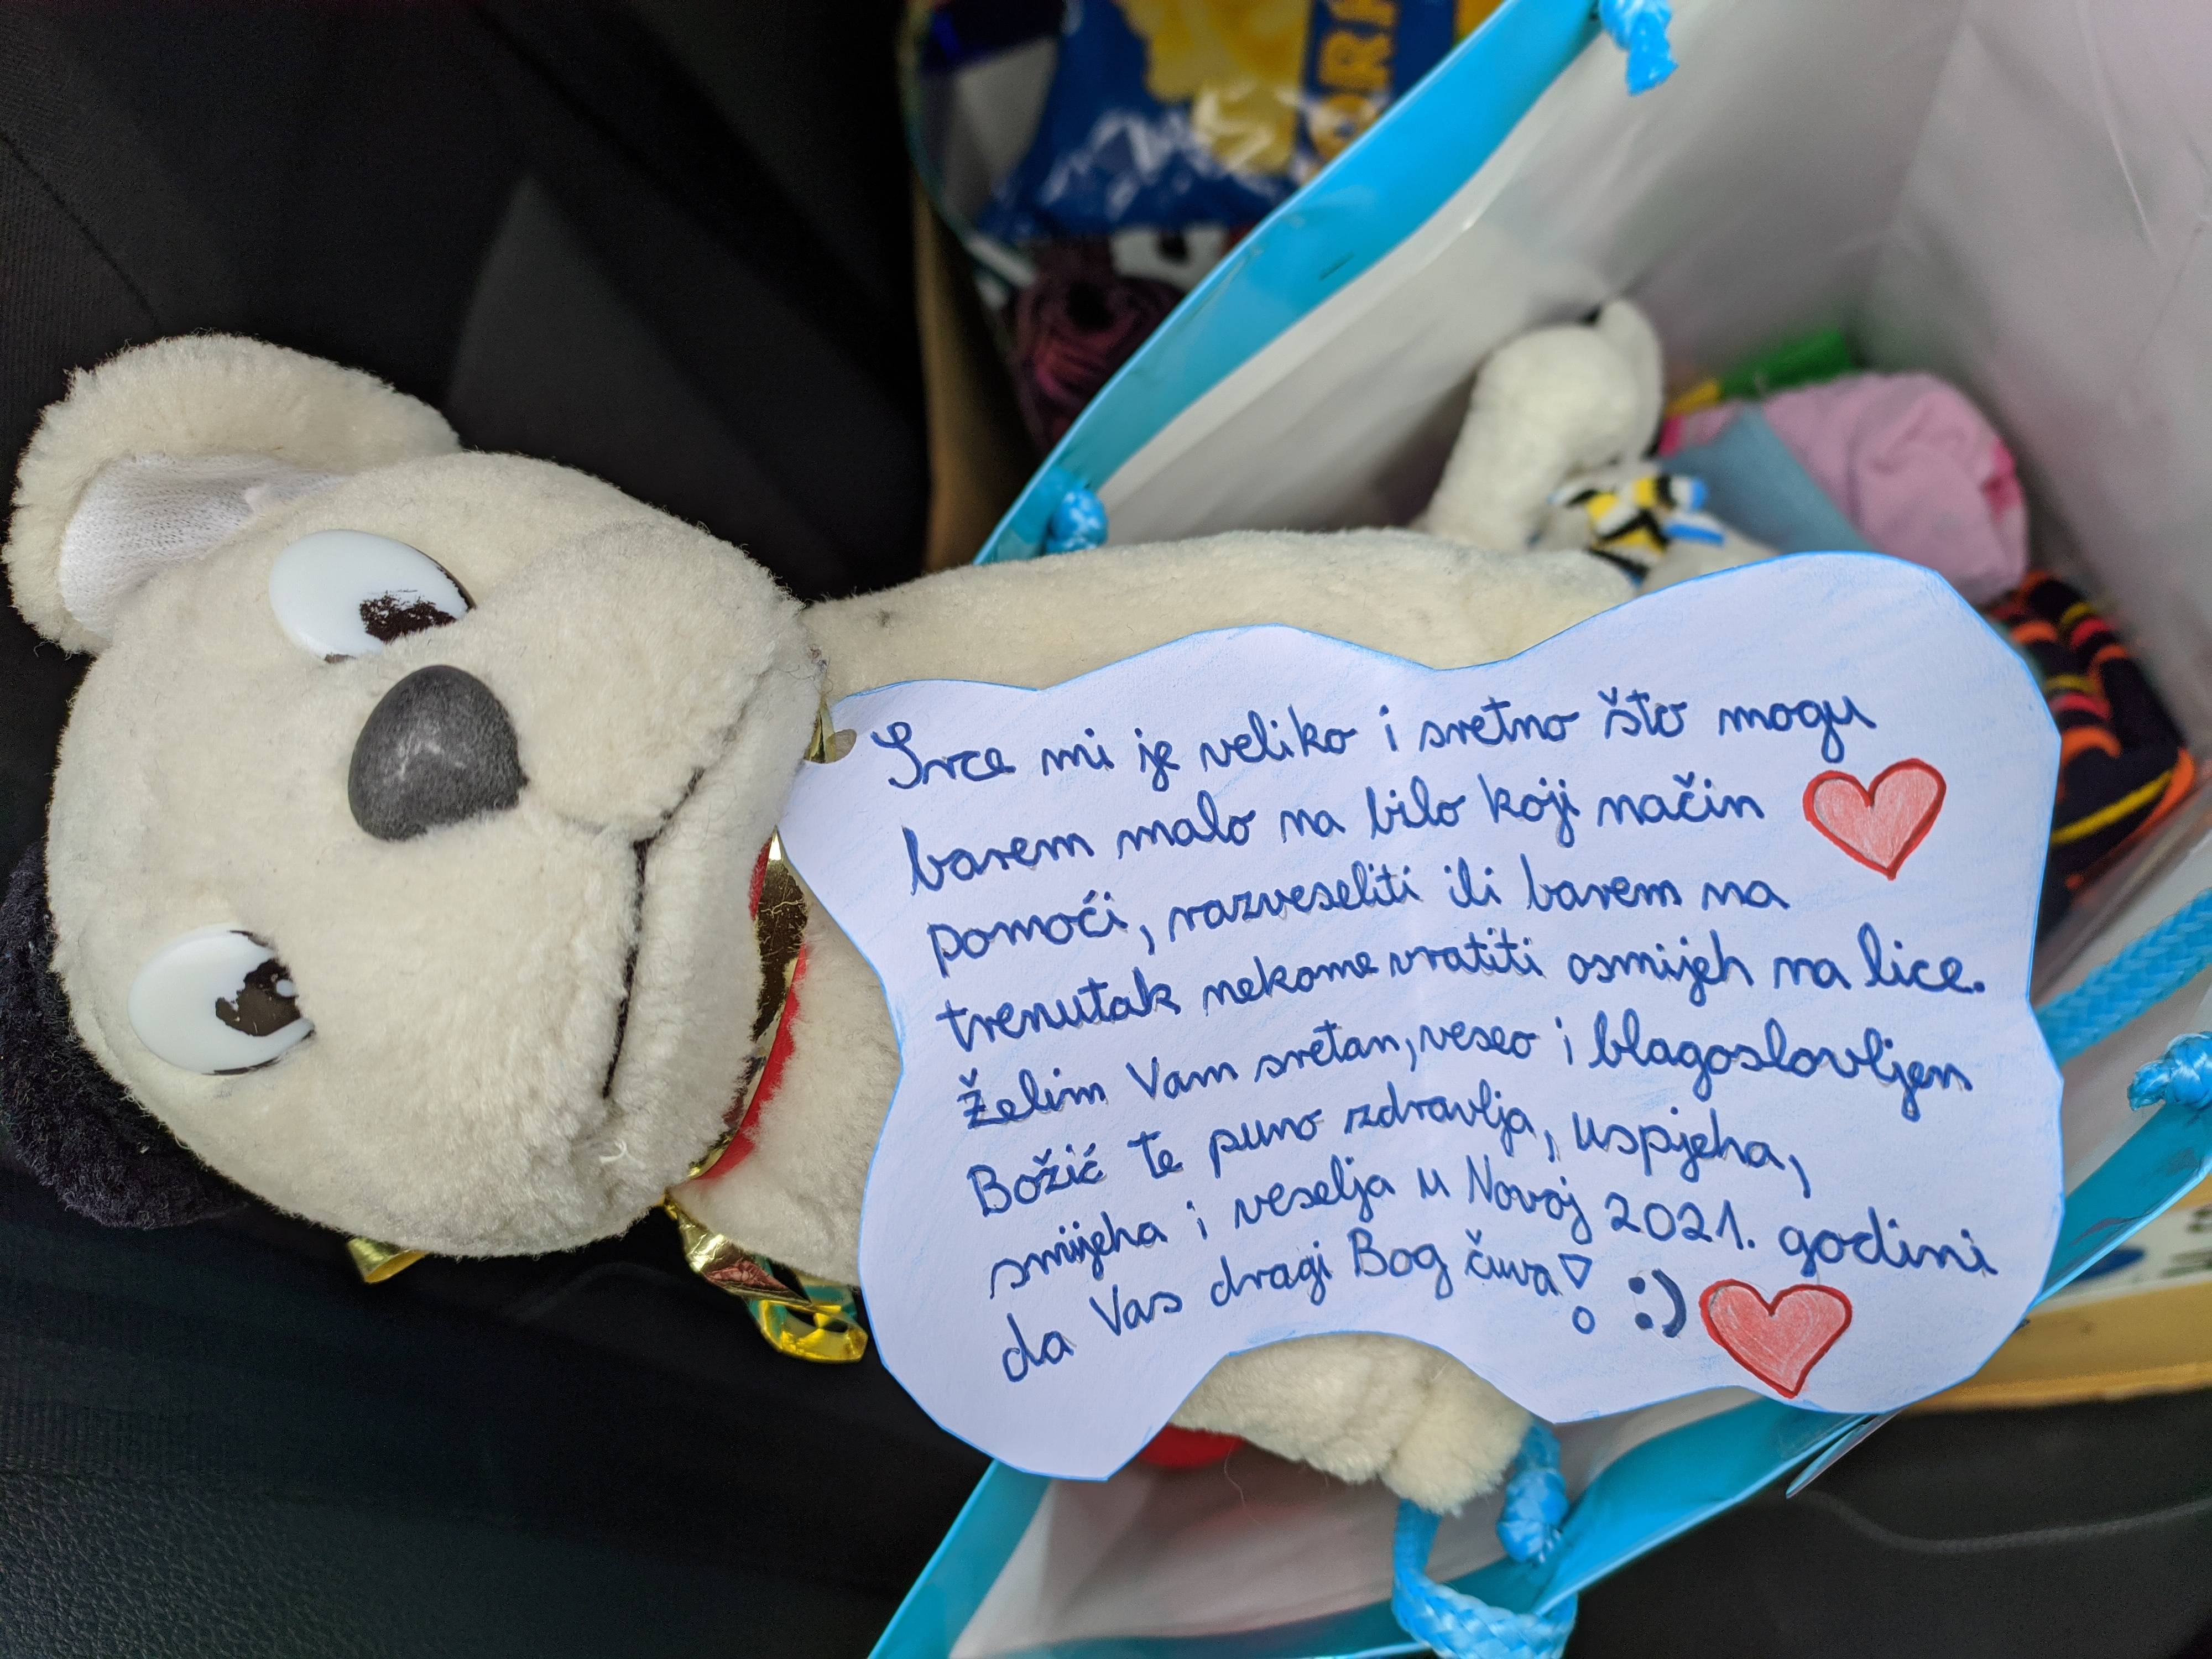 Srce mi je veliko i sretno što mogu
barem malo na bilo koji način
pomoći, razveseliti ili barem na
trenutak nekome vratiti osmijeh na lice.
Želim Vam sretan, veseo i blagoslovljen
Božić te puno zdravlja, uspjeha,
smijeha i veselja u Novoj 2021. godini
da Vas dragi Bog čuva! :)